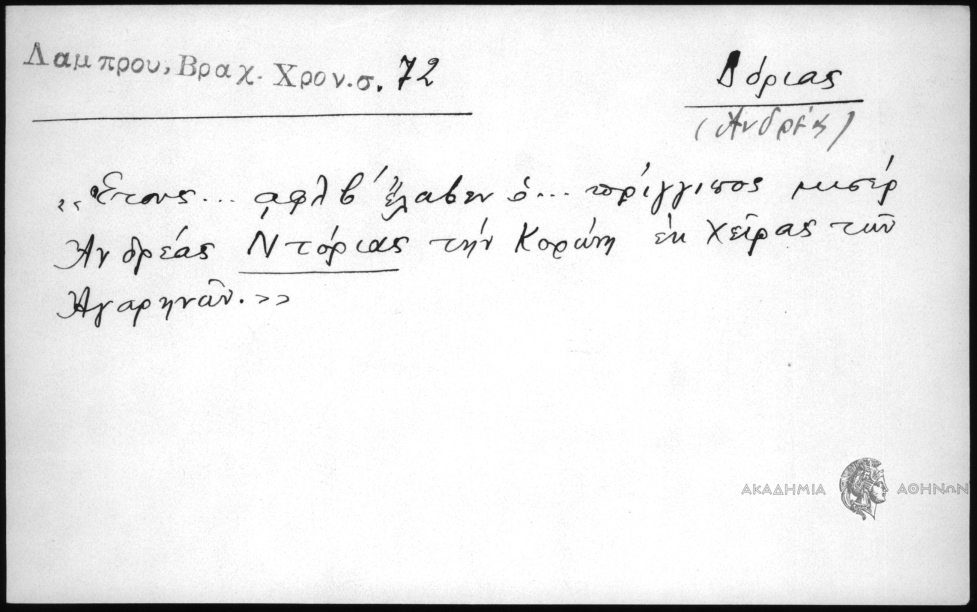 Λαμπρου, Βραχ. Χρον. σ. 72
Δόριας
(Ἀνδρέας)
„Ἔτους... αφλβ΄ ἔλαβεν ὁ... πρίγγιπος μισέρ
Ἀνδρέας Ντόριας τήν Κορώνη ἐκ χεῖρας τῶν
Ἀγαρηνῶν.>>
ΑΚΑΔΗΜΙΑ ΑΘΗΝΩΝ